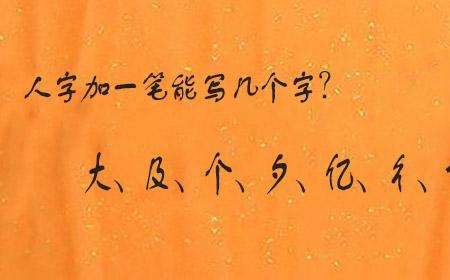 人字加一笔能写几个字?
大、及、个、夕、亿、彳、